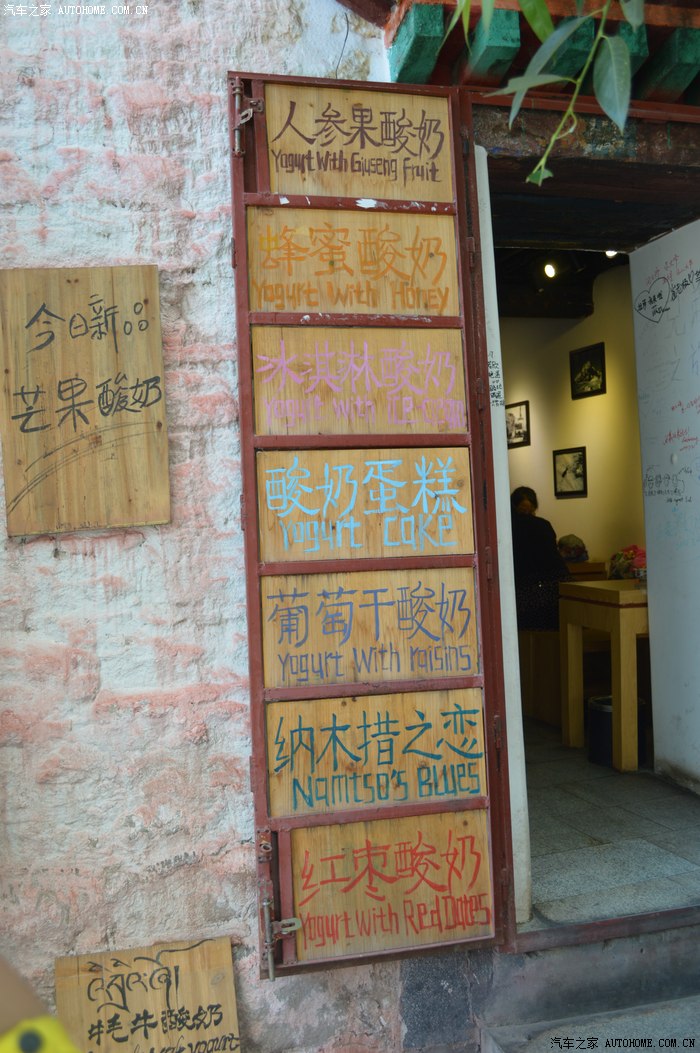 汽车之家 AUTOHOME.COM.CN
人参果酸奶
Yogurt With Giuseng fruit
蜂蜜酸奶
Yogurt With Honey
冰淇淋酸奶
酸奶蛋糕
Yogurt cake
葡萄干酸奶
Yogurt With raisins
纳木措之恋
Namtso's Blues
红枣酸奶
Yogurt With Red Dates
今日新品
芒果酸奶
牦牛酸奶
yogurt
汽车之家 AUTOHOME.COM.CN